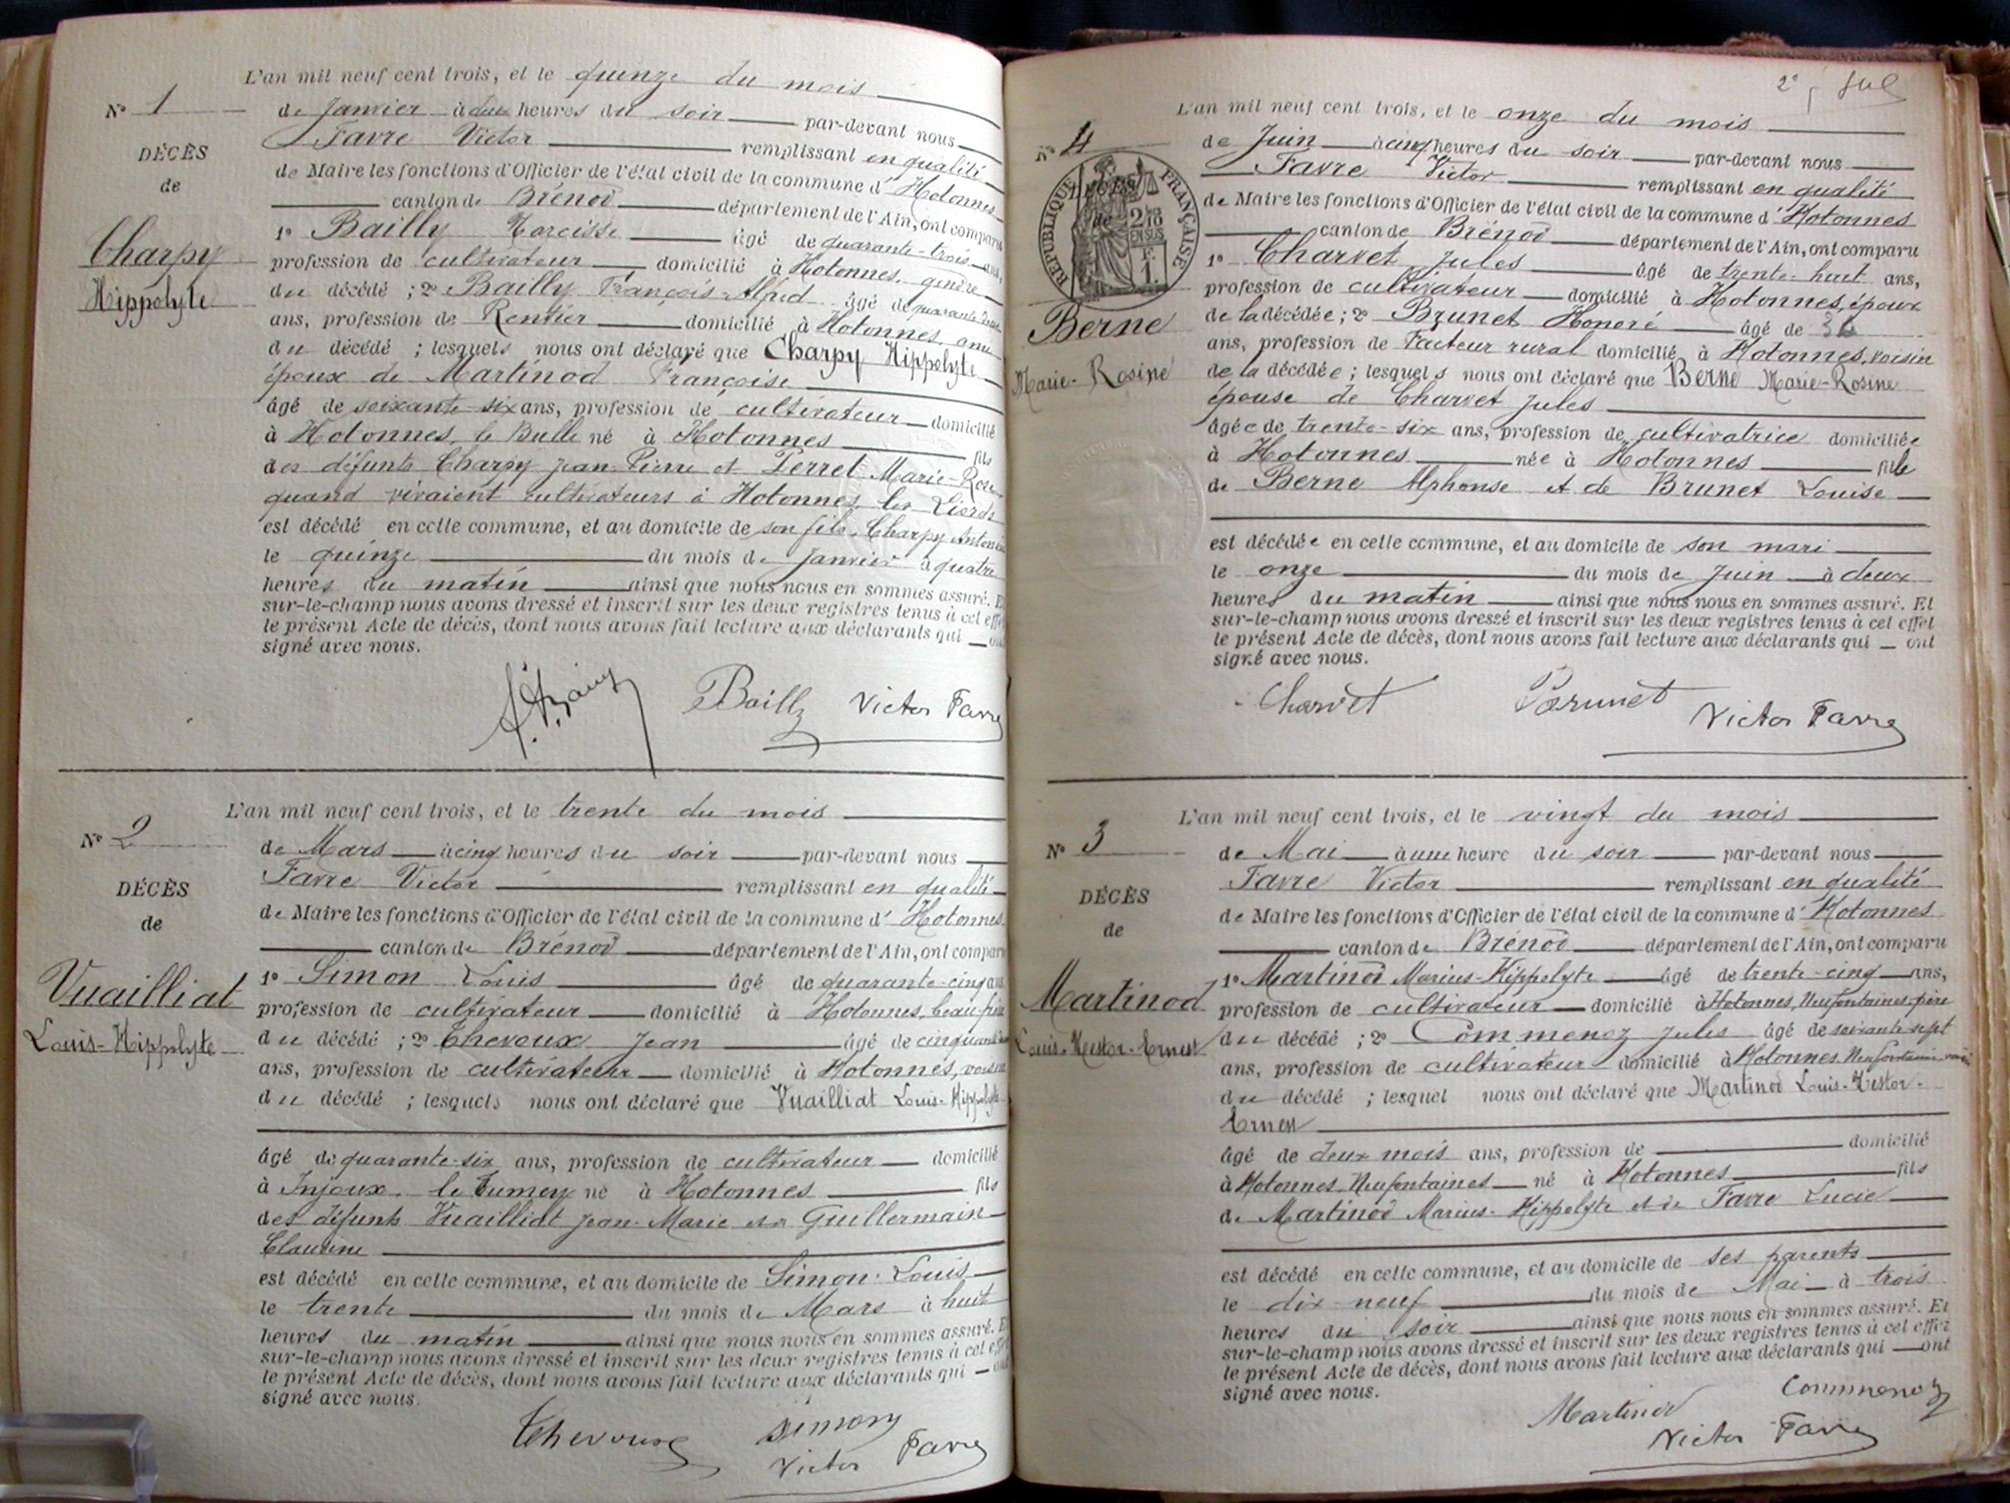 L'an mil neuf cent trois, et le quinze du mois
N° 1
de Janvier à deux heures du soir par-devant nous
Favre Victor remplissant en qualité
DÉCÈS
de Maire les fonctions d'Officier de l'état civil de la commune d' Hotonnes
de
canton de Brénod département de l'Ain, ont comparu
1° Bailly Narcisse âgé de quarante-trois ans,
Charpy
profession de cultivateur domicilié à Hotonnes, gendre
Hippolyte
du décédé ; 2° Bailly François-Alfred âgé de quarante
ans, profession de Rentier domicilié à Hotonnes, ami
du décédé ; lesquels nous ont déclaré que Charpy Hippolyte
époux de Martinod Françoise
âgé de soixante-six ans, profession de cultivateur domicilié
à Hotonnes, le Bulle né à Hotonnes fils
des défunts Charpy Jean-Pierre et Perret Marie-Rose
quand vivaient cultivateurs à Hotonnes, les Lierds
est décédé en cette commune, et au domicile de son fils, Charpy Antonin
le quinze du mois de Janvier à quatre
heures du matin ainsi que nous nous en sommes assuré. Et
sur-le-champ nous avons dressé et inscrit sur les deux registres tenus à cet effet
le présent Acte de décès, dont nous avons fait lecture aux déclarants qui ont
signé avec nous.
Bailly Victor Favre
L'an mil neuf cent trois, et le trente du mois
N° 2
de Mars à cinq heures du soir par-devant nous
Favre Victor remplissant en qualité
DÉCÈS
de Maire les fonctions d'Officier de l'état civil de la commune d' Hotonnes
de
canton de Brénod département de l'Ain, ont comparu
1° Simon Louis âgé de quarante-cinq ans
Vuailliat
profession de cultivateur domicilié à Hotonnes, beau-frère
Louis-Hippolyte
du décédé ; 2° Chevoux Jean âgé de cinquante
ans, profession de cultivateur domicilié à Hotonnes, voisin
du décédé ; lesquels nous ont déclaré que Vuailliat Louis-Hippolyte
âgé de quarante-six ans, profession de cultivateur domicilié
à Injoux, le Tumey né à Hotonnes fils
des défunts Vuailliat Jean-Marie et de Guillermain
Claudine
est décédé en cette commune, et au domicile de Simon Louis
le trente du mois de Mars à huit
heures du matin ainsi que nous nous en sommes assuré. Et
sur-le-champ nous avons dressé et inscrit sur les deux registres tenus à cet effet
le présent Acte de décès, dont nous avons fait lecture aux déclarants qui ont
signé avec nous.
Chevoux Simon
Victor Favre
2e
L'an mil neuf cent trois, et le onze du mois
N° 4
de Juin à cinq heures du soir par-devant nous
Favre Victor remplissant en qualité
RÉPUBLIQUE FRANÇAISE
2/10 EN SUS
de Maire les fonctions d'Officier de l'état civil de la commune d' Hotonnes
canton de Brénod département de l'Ain, ont comparu
1° Charvet Jules âgé de trente-huit ans,
profession de cultivateur domicilié à Hotonnes, époux
Berne
de la décédée ; 2° Brunet Honoré âgé de 36
ans, profession de Facteur rural domicilié à Hotonnes, voisin
Marie-Rosine
de la décédée ; lesquels nous ont déclaré que Berne Marie-Rosine
épouse de Charvet Jules
âgée de trente-six ans, profession de cultivatrice domiciliée
à Hotonnes née à Hotonnes fille
de Berne Alphonse et de Brunet Louise
est décédée en cette commune, et au domicile de son mari
le onze du mois de Juin à deux
heures du matin ainsi que nous nous en sommes assuré. Et
sur-le-champ nous avons dressé et inscrit sur les deux registres tenus à cet effet
le présent Acte de décès, dont nous avons fait lecture aux déclarants qui ont
signé avec nous.
Charvet Brunet Victor Favre
L'an mil neuf cent trois, et le vingt du mois
N° 3
de Mai à une heure du soir par-devant nous
Favre Victor remplissant en qualité
DÉCÈS
de Maire les fonctions d'Officier de l'état civil de la commune d' Hotonnes
de
canton de Brénod département de l'Ain, ont comparu
1° Martinod Marius-Hippolyte âgé de trente-cinq ans,
Martinod
profession de cultivateur domicilié à Hotonnes, Neufontaines, père
Louis-Nestor-Ernest
du décédé ; 2° Commenoz Jules âgé de soixante-sept
ans, profession de cultivateur domicilié à Hotonnes, Neufontaines, voisin
du décédé ; lesquel nous ont déclaré que Martinod Louis-Nestor-
Ernest
âgé de deux mois ans, profession de domicilié
à Hotonnes, Neufontaines né à Hotonnes fils
de Martinod Marius-Hippolyte et de Favre Lucie
est décédé en cette commune, et au domicile de ses parents
le dix-neuf du mois de Mai à trois
heures du soir ainsi que nous nous en sommes assuré. Et
sur-le-champ nous avons dressé et inscrit sur les deux registres tenus à cet effet
le présent Acte de décès, dont nous avons fait lecture aux déclarants qui ont
signé avec nous.
Commenoz
Martinod
Victor Favre